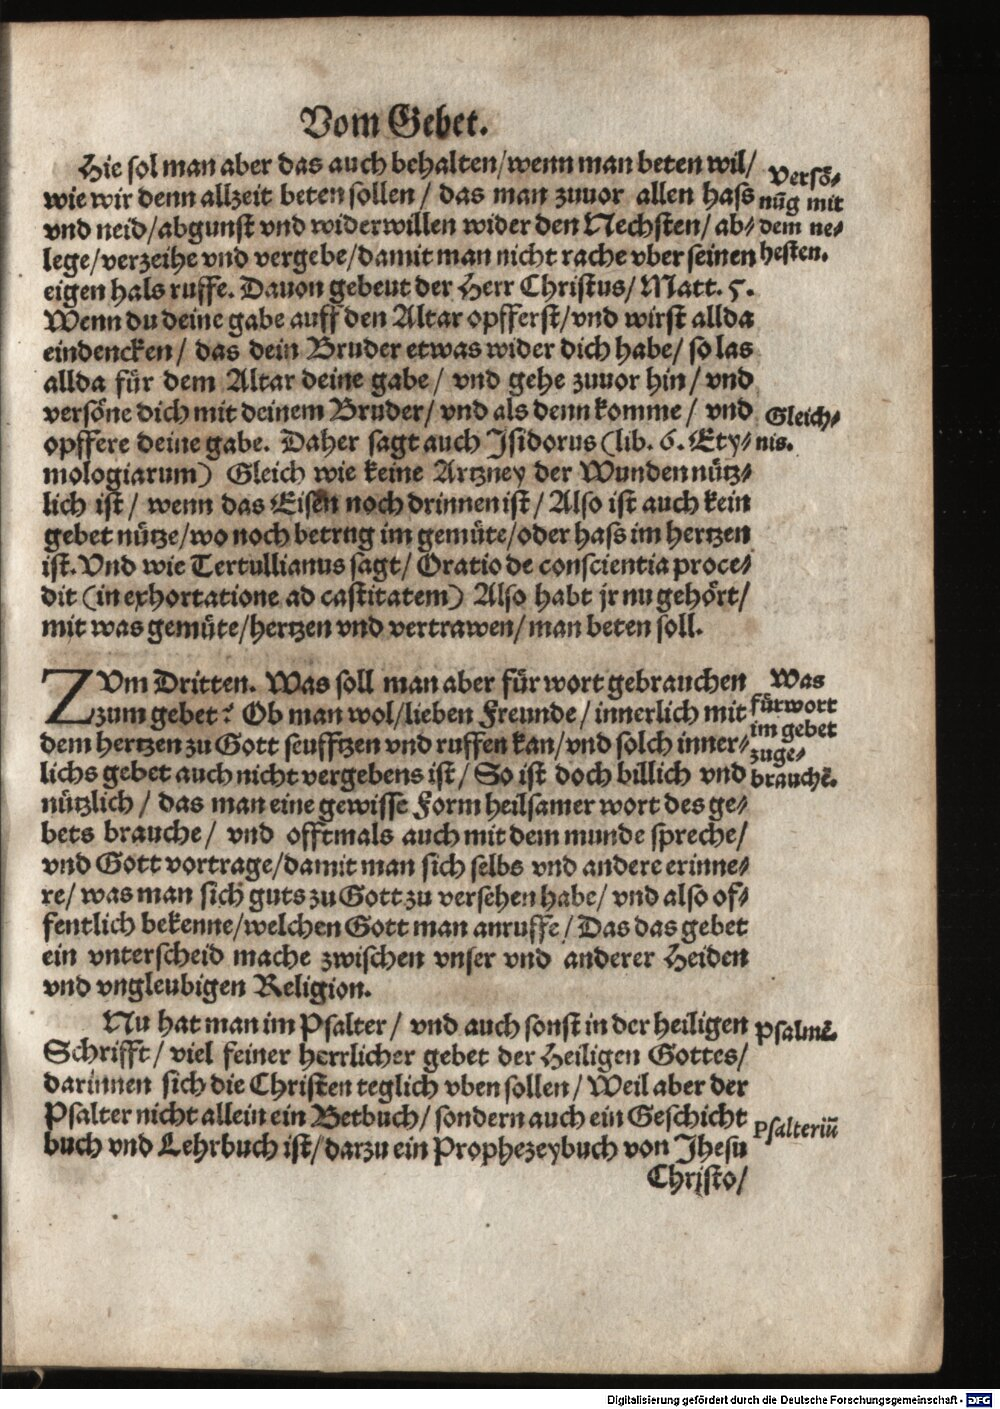 Vom Gebet.
Hie sol man aber das auch behalten/wenn man beten wil/
wie wir denn allzeit beten sollen / das man zuuor allen hass
vnd neid/abgunst vnd widerwillen wider den Nechsten/ ab-
lege/verzeihe vnd vergebe/damit man nicht rache vber seinen
eigen hals ruffe. Dauon gebeut der Herr Christus/ Matt. 5.
Wenn du deine gabe auff den Altar opfferst/vnd wirst allda
eindencken/ das dein Bruder etwas wider dich habe/ so las
allda für dem Altar deine gabe/ vnd gehe zuuor hin/ vnd
versöne dich mit deinem Bruder/ vnd als denn komme/ vnd
opffere deine gabe. Daher sagt auch Isidorus (lib. 6. Ety-
mologiarum) Gleich wie keine Artzney der Wunden nütz-
lich ist/ wenn das Eisen noch drinnen ist/ Also ist auch kein
gebet nütze/wo noch betrug im gemüte/oder hass im hertzen
ist. Vnd wie Tertullianus sagt/ Oratio de conscientia proce-
dit (in exhortatione ad castitatem) Also habt jr nu gehört/
mit was gemüte/hertzen vnd vertrawen/man beten soll.
Versö-
nūg mit
dem ne-
hesten.
Gleich-
nis.
ZVm Dritten. Was soll man aber für wort gebrauchen
zum gebet? Ob man wol/lieben Freunde/ innerlich mit
dem hertzen zu Gott seufftzen vnd ruffen kan/vnd solch inner-
lichs gebet auch nicht vergebens ist/ So ist doch billich vnd
nützlich / das man eine gewisse Form heilsamer wort des ge-
bets brauche/ vnd offtmals auch mit dem munde spreche/
vnd Gott vortrage/damit man sich selbs vnd andere erinne-
re/ was man sich guts zu Gott zu versehen habe/ vnd also of-
fentlich bekenne/welchen Gott man anruffe/ Das das gebet
ein vnterscheid mache zwischen vnser vnd anderer Heiden
vnd vngleubigen Religion.
Was
für wort
im gebet
zuge-
brauchē.
Nu hat man im Psalter/ vnd auch sonst in der heiligen
Schrifft/ viel feiner herrlicher gebet der Heiligen Gottes/
darinnen sich die Christen teglich vben sollen/ Weil aber der
Psalter nicht allein ein Betbuch/ sondern auch ein Geschicht
buch vnd Lehrbuch ist/darzu ein Prophezeybuch von Jhesu
Christo/
Psalmē.
Psalteriū
Digitalisierung gefördert durch die Deutsche Forschungsgemeinschaft - DFG